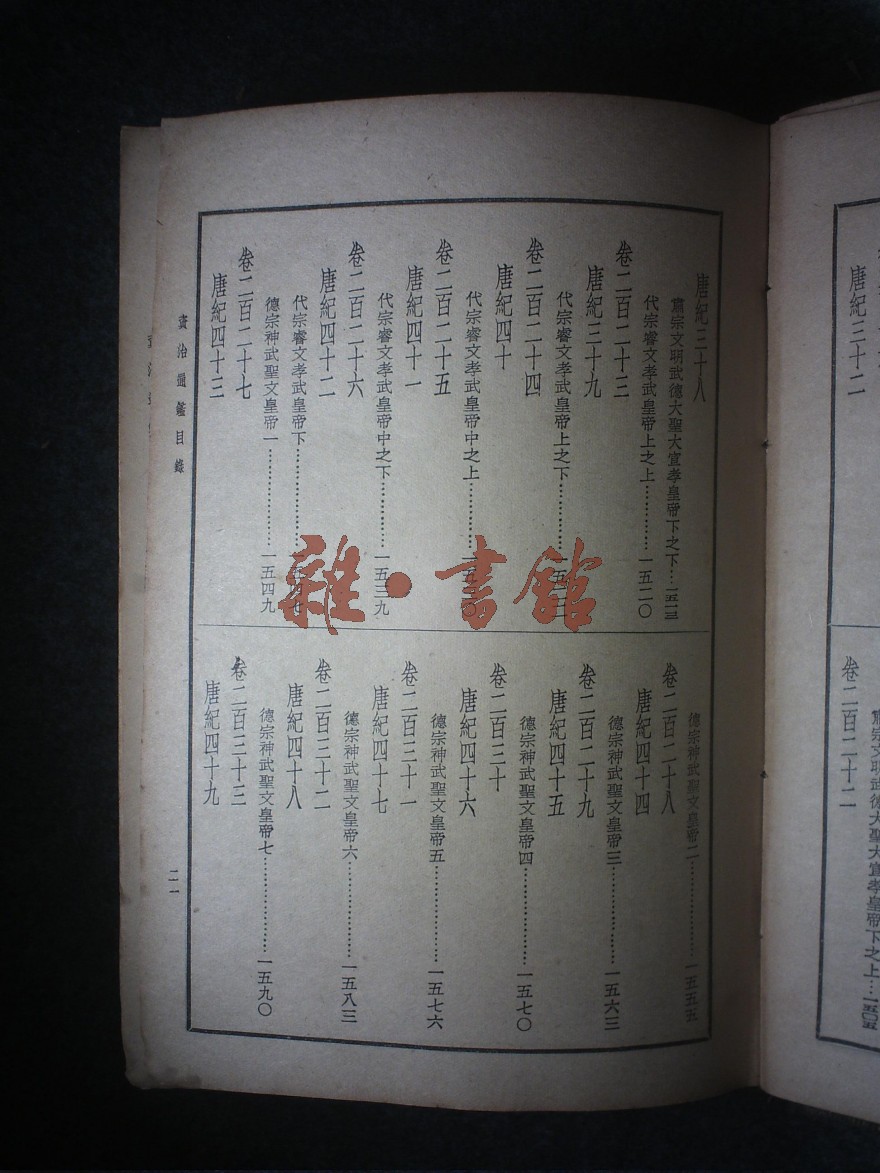 唐紀三十二
卷二百二十二
肅宗文明武德大聖大宣孝皇帝下之上…一五〇五
唐紀三十八
肅宗文明武德大聖大宣孝皇帝下之下…一五一三
卷二百二十三
代宗睿文孝武皇帝上之上…………一五二〇
唐紀三十九
卷二百二十四
代宗睿文孝武皇帝上之下…………一五
唐紀四十
卷二百二十五
代宗睿文孝武皇帝中之上…………一五
唐紀四十一
卷二百二十六
代宗睿文孝武皇帝中之下…………一五三九
唐紀四十二
卷二百二十七
代宗睿文孝武皇帝下…………
德宗神武聖文皇帝一…………一五四九
唐紀四十三
德宗神武聖文皇帝二…………一五五五
卷二百二十八
唐紀四十四
德宗神武聖文皇帝三…………一五六三
卷二百二十九
唐紀四十五
德宗神武聖文皇帝四…………一五七〇
卷二百三十
唐紀四十六
德宗神武聖文皇帝五…………一五七六
卷二百三十一
唐紀四十七
德宗神武聖文皇帝六…………一五八三
卷二百三十二
唐紀四十八
德宗神武聖文皇帝七…………一五九〇
卷二百三十三
唐紀四十九
資治通鑑目錄
二一
雜·書館